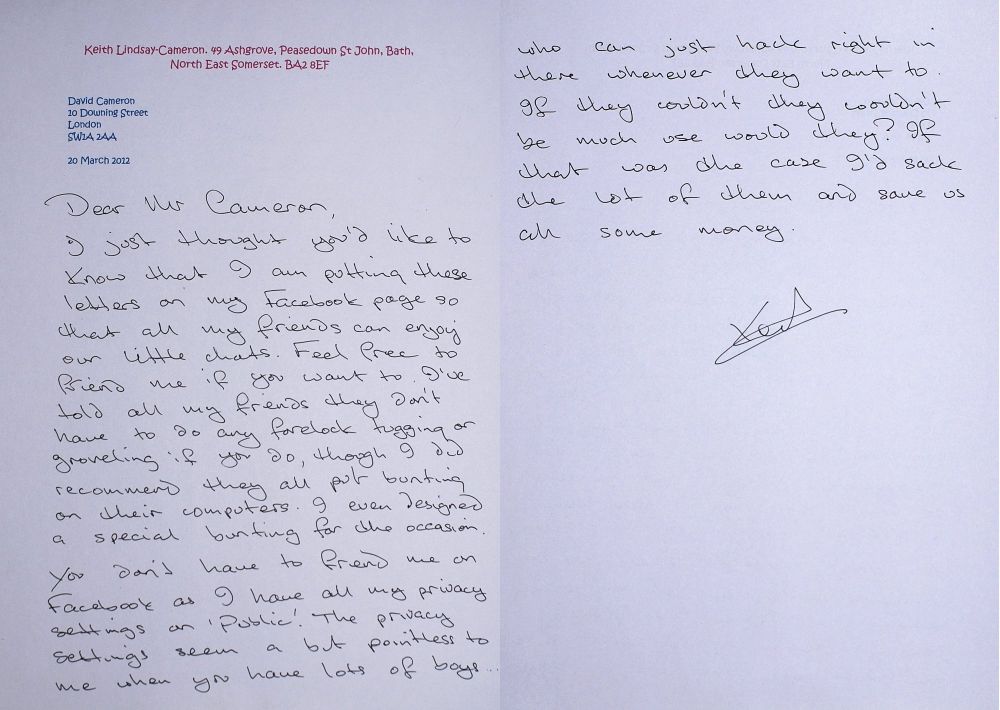 Keith Lindsay-Cameron. 49 Ashgrove, Peasedown St John, Bath,
North East Somerset. BA2 8EF
David Cameron
10 Downing Street
London
SW1A 2AA
20 March 2012
Dear Mr Cameron,
I just thought you'd like to
know that I am putting these
letters on my Facebook page so
that all my friends can enjoy
our little chats. Feel free to
friend me if you want to. I've
told all my friends they don't
have to do any forelock tugging or
groveling if you do, though I did
recommend they all put bunting
on their computers. I even designed
a special bunting for the occasion.
You don't have to friend me on
Facebook as I have all my privacy
settings on 'Public'. The privacy
settings seem a bit pointless to
me when you have lots of boys...
who can just hack right in
there whenever they want to.
If they couldn't they wouldn't
be much use would they? If
that was the case I'd sack
the lot of them and save us
all some money.
Keith